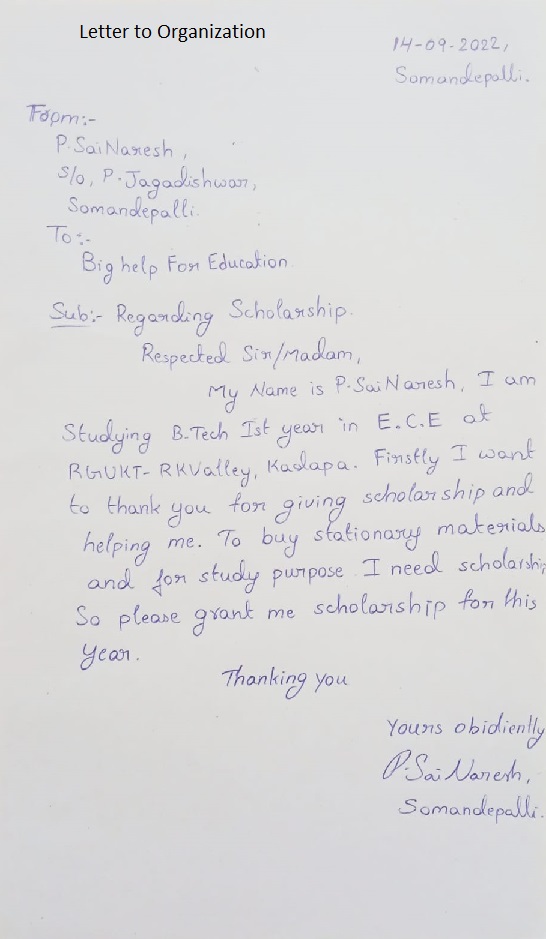 Letter to Organization
14-09-2022,
Somandepalli.
From:-
P.Sai Naresh,
S/o, P. Jagadishwar,
Somandepalli.
To:-
Big help For Education
Sub:- Regarding Scholarship.
Respected Sir/Madam,
My Name is P.Sai Naresh, I am
Studying B.Tech Ist year in E.C.E at
RGUKT-RKValley, Kadapa. Firstly I want
to thank you for giving scholarship and
helping me. To buy stationary materials
and for study purpose I need scholarship
So please grant me scholarship for this
year.
Thanking you
Yours obidiently
P.Sai Naresh,
Somandepalli.